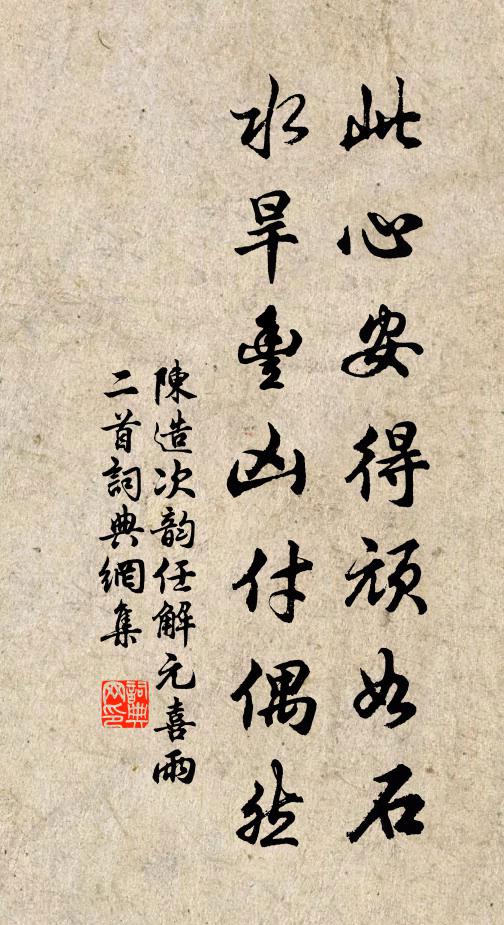 此心安得頑如石
水旱豐凶付偶然
陳造次韵任解元喜雨
二首詞典網集
詞典網印